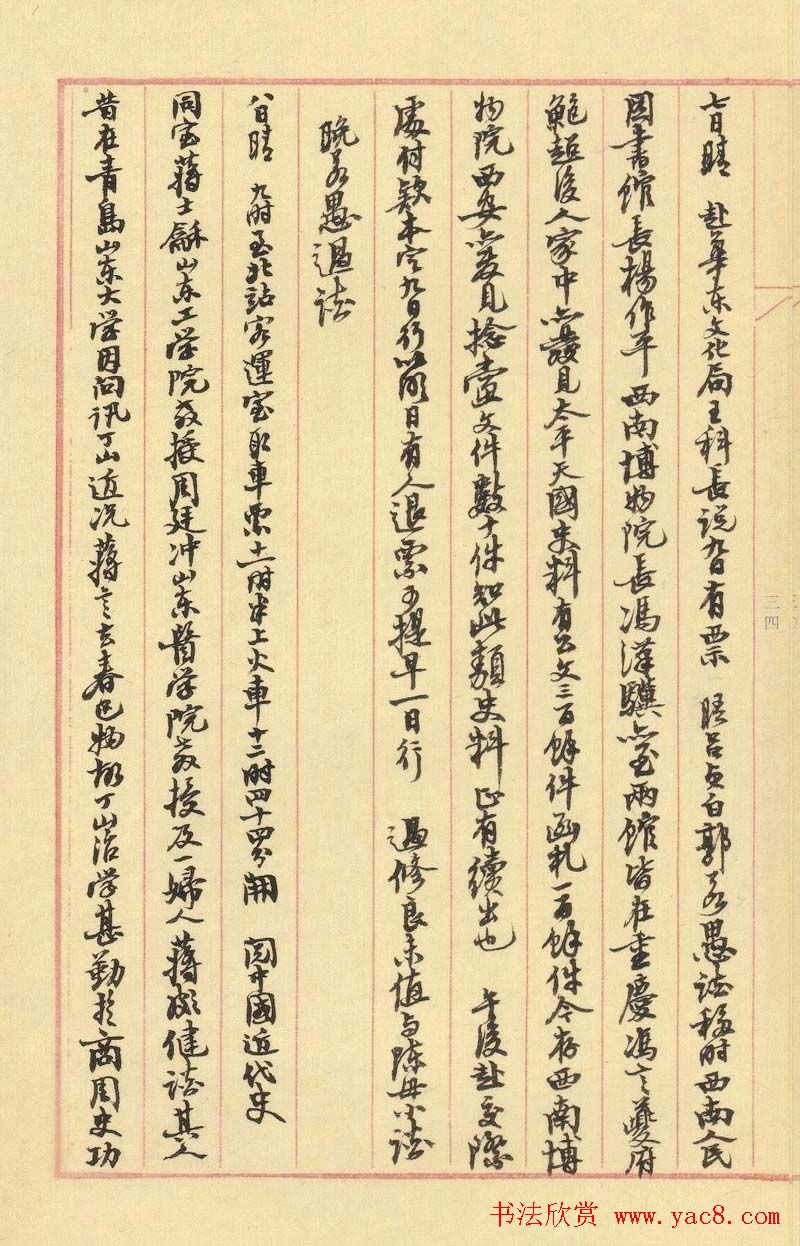 七日晴 赴華东文化局王科長说九日有票 晤吕贞白郭若愚谈移时西南人民
图書馆長楊作平 西南博物院長馮漢驥亦至兩館皆在重慶馮言夔府
鲍超後人家中亦發見太平天國史料有公文三百餘件函札一百餘件今存西南博
物院西安亦發見捻軍文件數十件知此類史料正有續出也 午後赴交際
處付款本定九日行以明日有人退票可提早一日行 過修良未值与陈毋小谈
晚若愚過谈
八日晴 九时至北站客運室取車票十一时半上火車十二时四十四分開 阅中國近代史
同室蒋士龢山东工学院教授周廷冲山东醫学院教授及一婦人蒋頗健谈其人
昔在青島山东大学因问讯丁山近况蒋言去春已物故丁山治学甚勤於商周史功
三四
书法欣赏 www.yac8.com